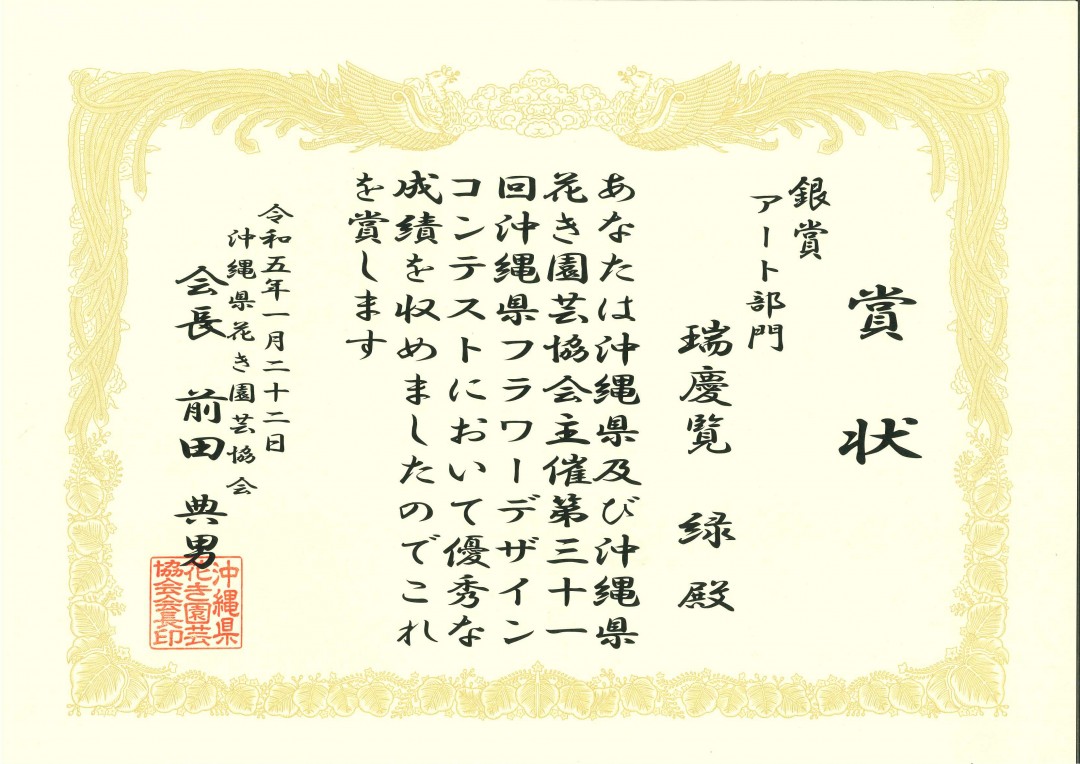 賞状
銀賞
アート部門
瑞慶覧 緑 殿
あなたは沖縄県及び沖縄県
花き園芸協会主催第三十一
回沖縄県フラワーデザイン
コンテストにおいて優秀な
成績を収めましたのでこれ
を賞します
令和五年一月二十二日
沖縄県花き園芸協会
会長 前田 典男
沖縄県
花き園芸
協会会長印